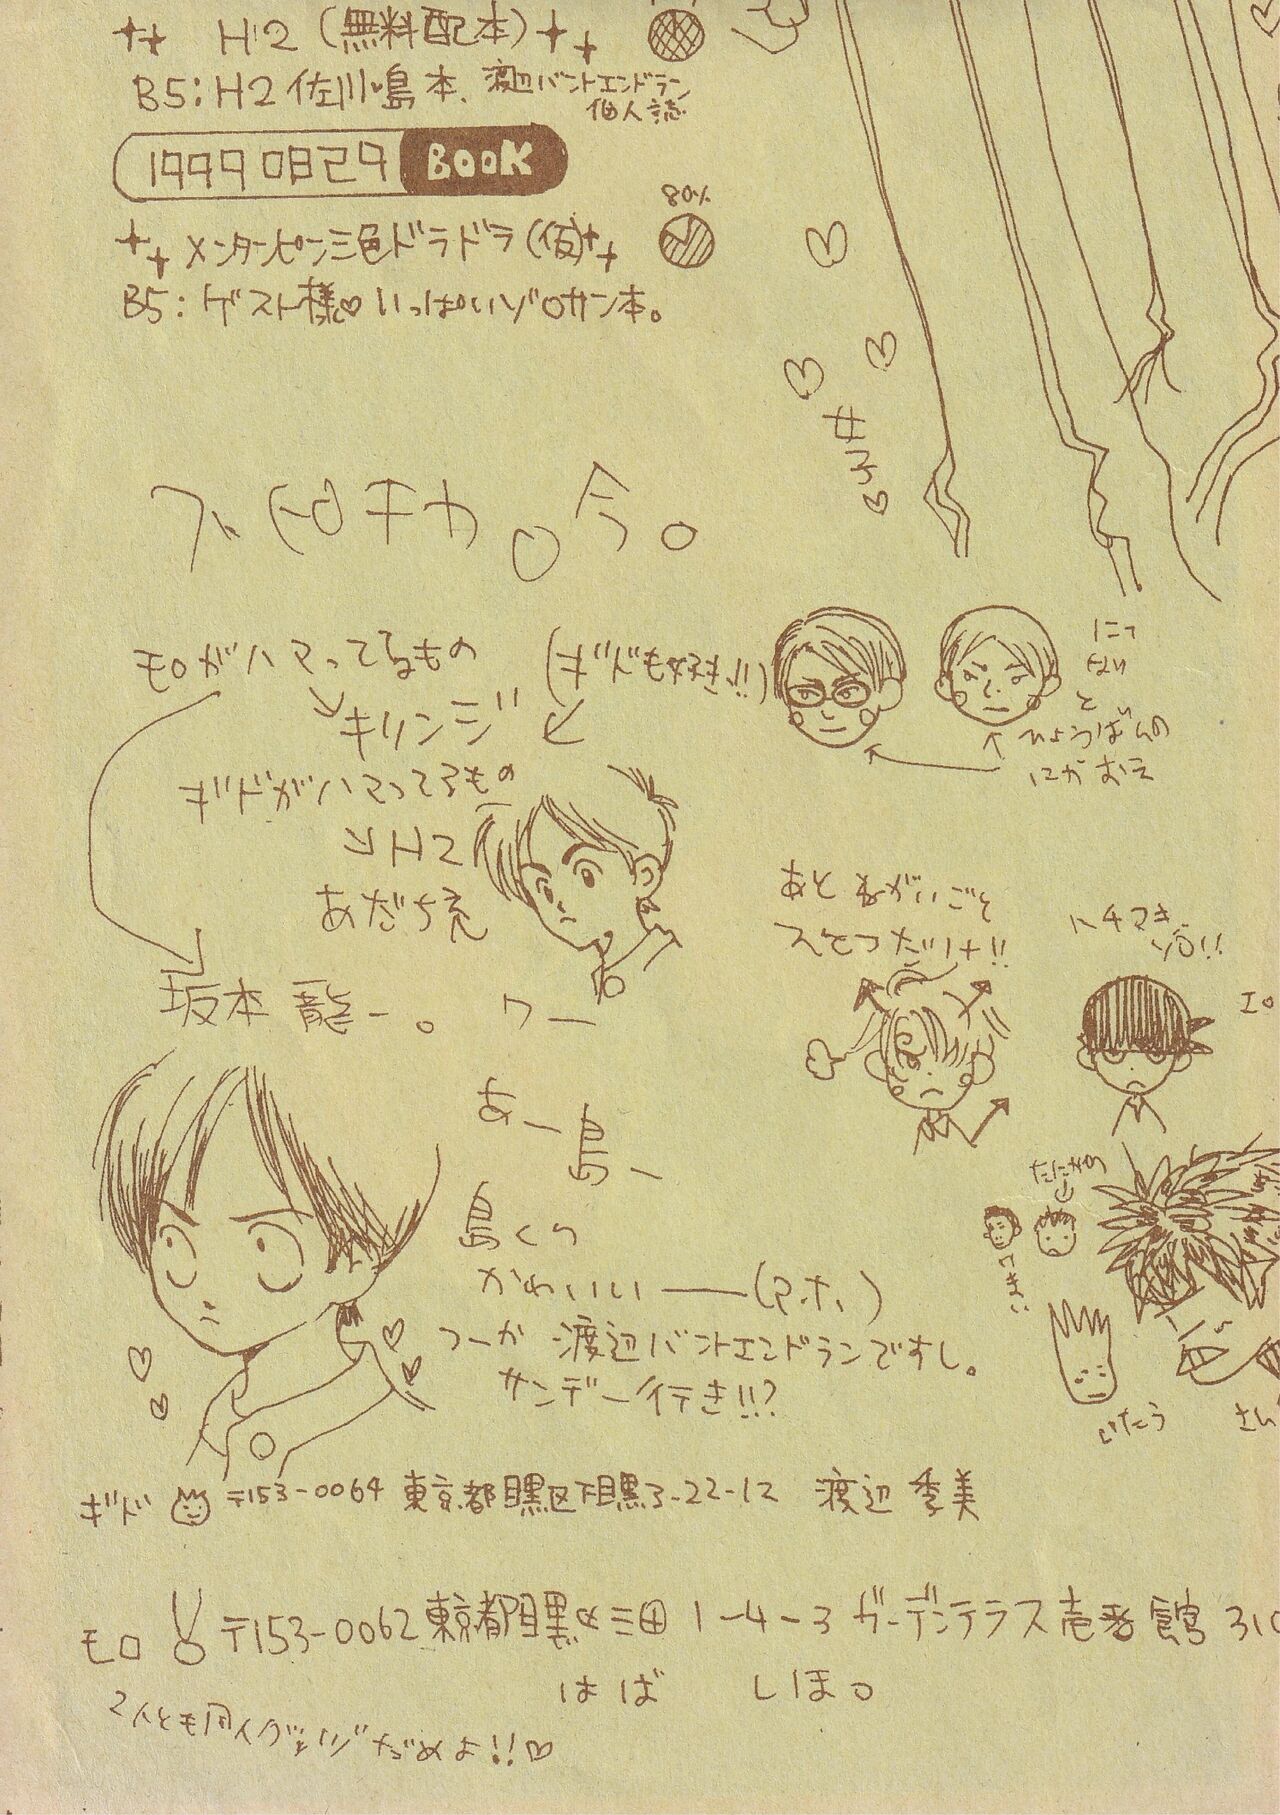 H2（無料配本）
B5:H2 佐川・島本、渡辺バントエンドラン
個人誌
1999 0829 BOOK
80%
メンターピン三色ドラドラ（仮）
B5:ゲスト様♡いっぱいゾロサン本。
女子♡
今。
モロがハマってるもの
（ギドも好き!!）
キリンジ
ギドがハマってるもの
H2
あだち充
坂本龍一。
にっ
と
ひょうばんの
にがおえ
あと ねがいごと
ひとつだけ!!
ハチマキ
ゾロ!!
エロ
あー島ー
島くん
かわいいー（アホ）
つーか 渡辺バントエンドランですし。
サンデー行き!!?
ギド 〒153-0064 東京都目黒区下目黒3-22-12 渡辺 季美
モロ 〒153-0062 東京都目黒区三田1-4-3 ガーデンテラス壱番館 310
はば しほ。
2人とも同人グッバイだめよ!!♡